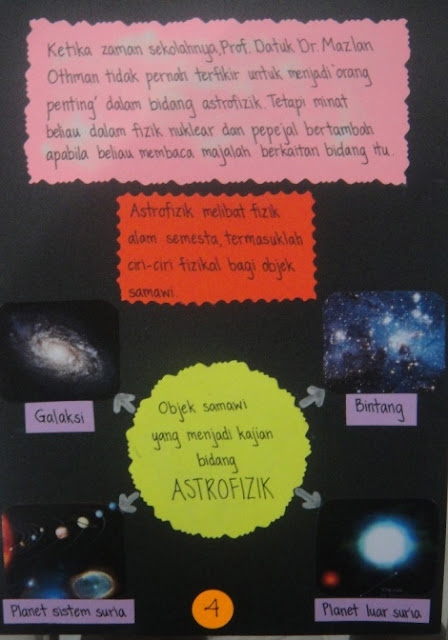 Ketika zaman sekolahnya, Prof. Datuk Dr. Mazlan
Othman tidak pernah terfikir untuk menjadi 'orang
penting' dalam bidang astrofizik. Tetapi minat
beliau dalam fizik nuklear dan pepejal bertambah
apabila beliau membaca majalah berkaitan bidang itu.
Astrofizik melibat fizik
alam semesta, termasuklah
ciri-ciri fizikal bagi objek
samawi.
Galaksi
Bintang
Objek samawi
yang menjadi kajian
bidang
ASTROFIZIK
Planet sistem suria
Planet luar suria
4